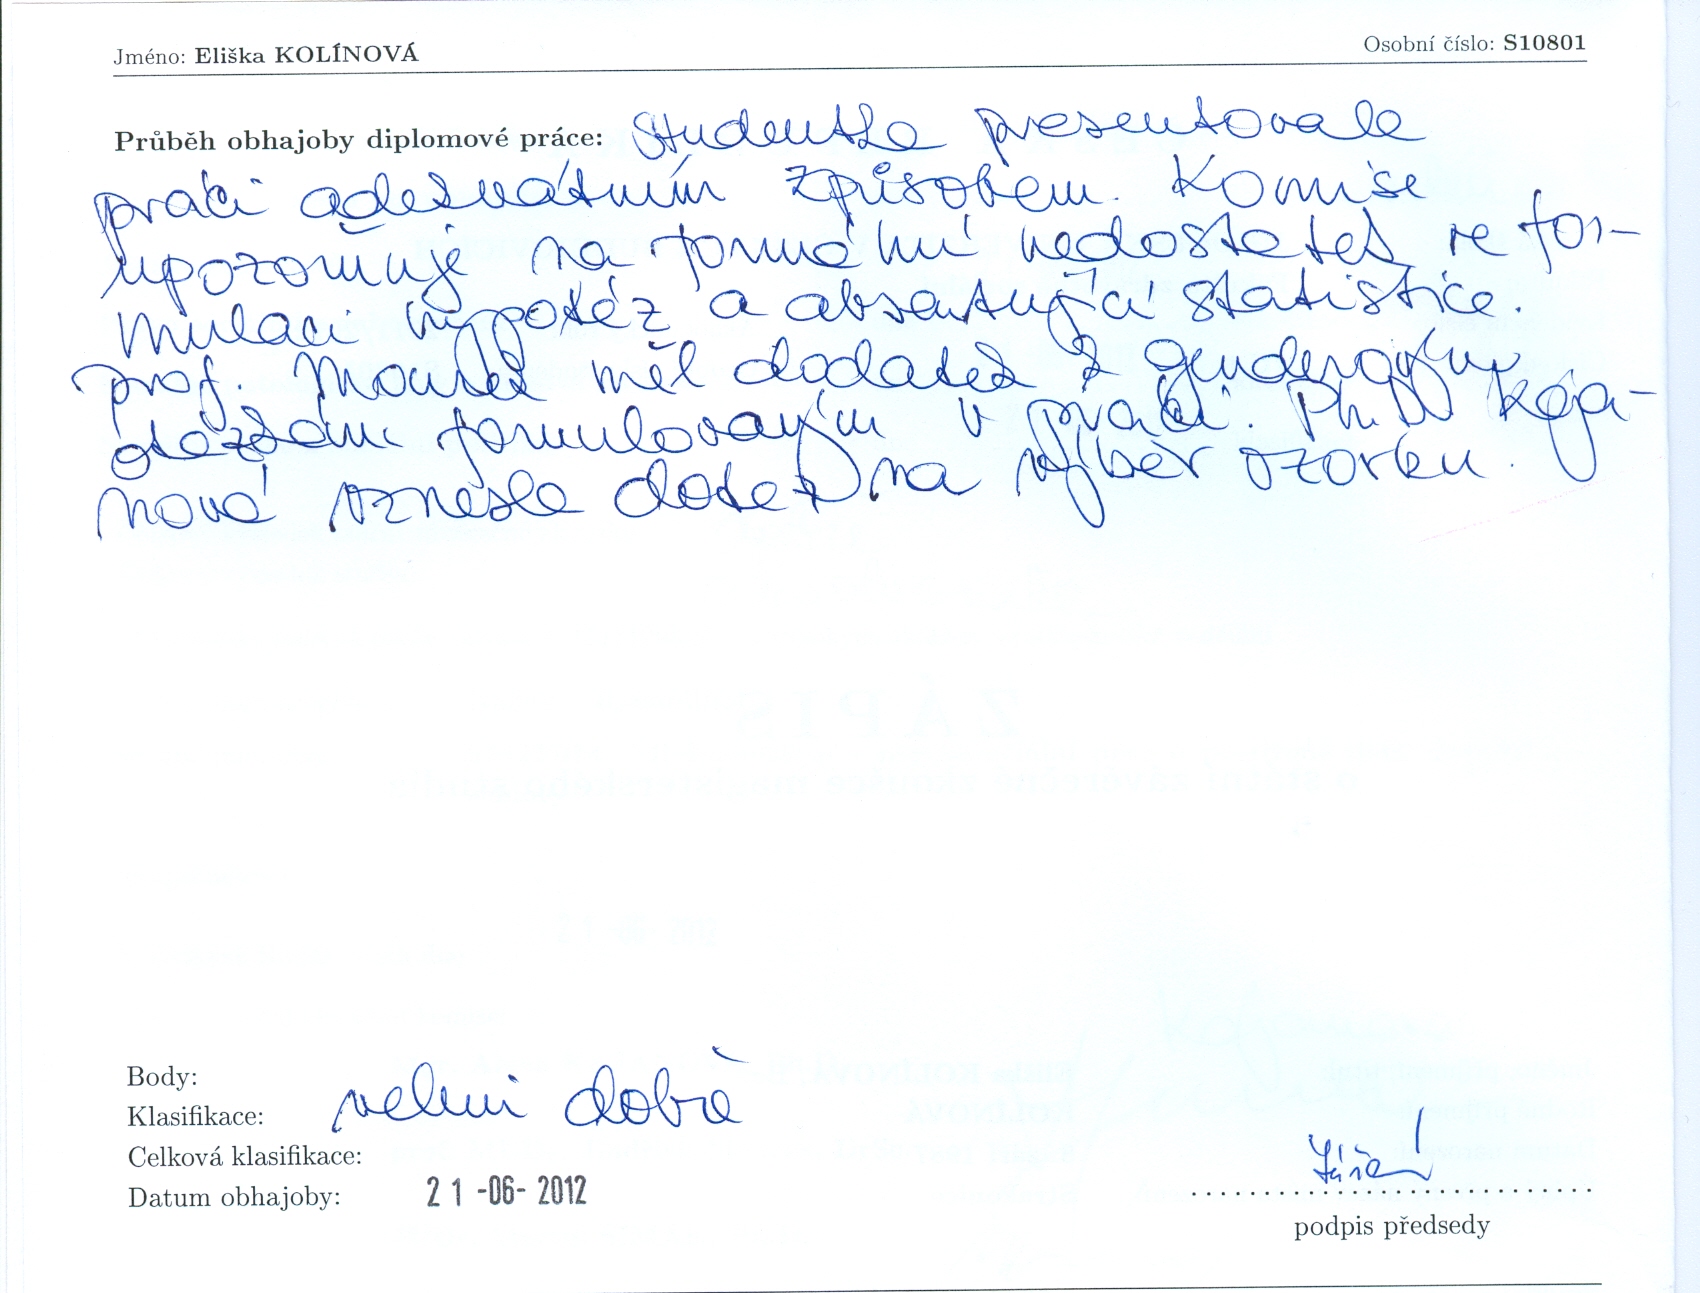 Jméno: Eliška KOLÍNOVÁ
Osobní číslo: S10801
Průběh obhajoby diplomové práce: Studentka presentovala
práci adekvátním způsobem. Komise
upozorňuje na formální nedostatek ve for-
mulaci hypotéz a absentující statistice.
prof. Mareš měl dodatek k genderovým
otázkám formulovaným v práci. PhD
nová vznesla dotaz na výběr vzorku.
Body:
Klasifikace: velmi dobře
Celková klasifikace:
Datum obhajoby: 21 -06- 2012
podpis předsedy